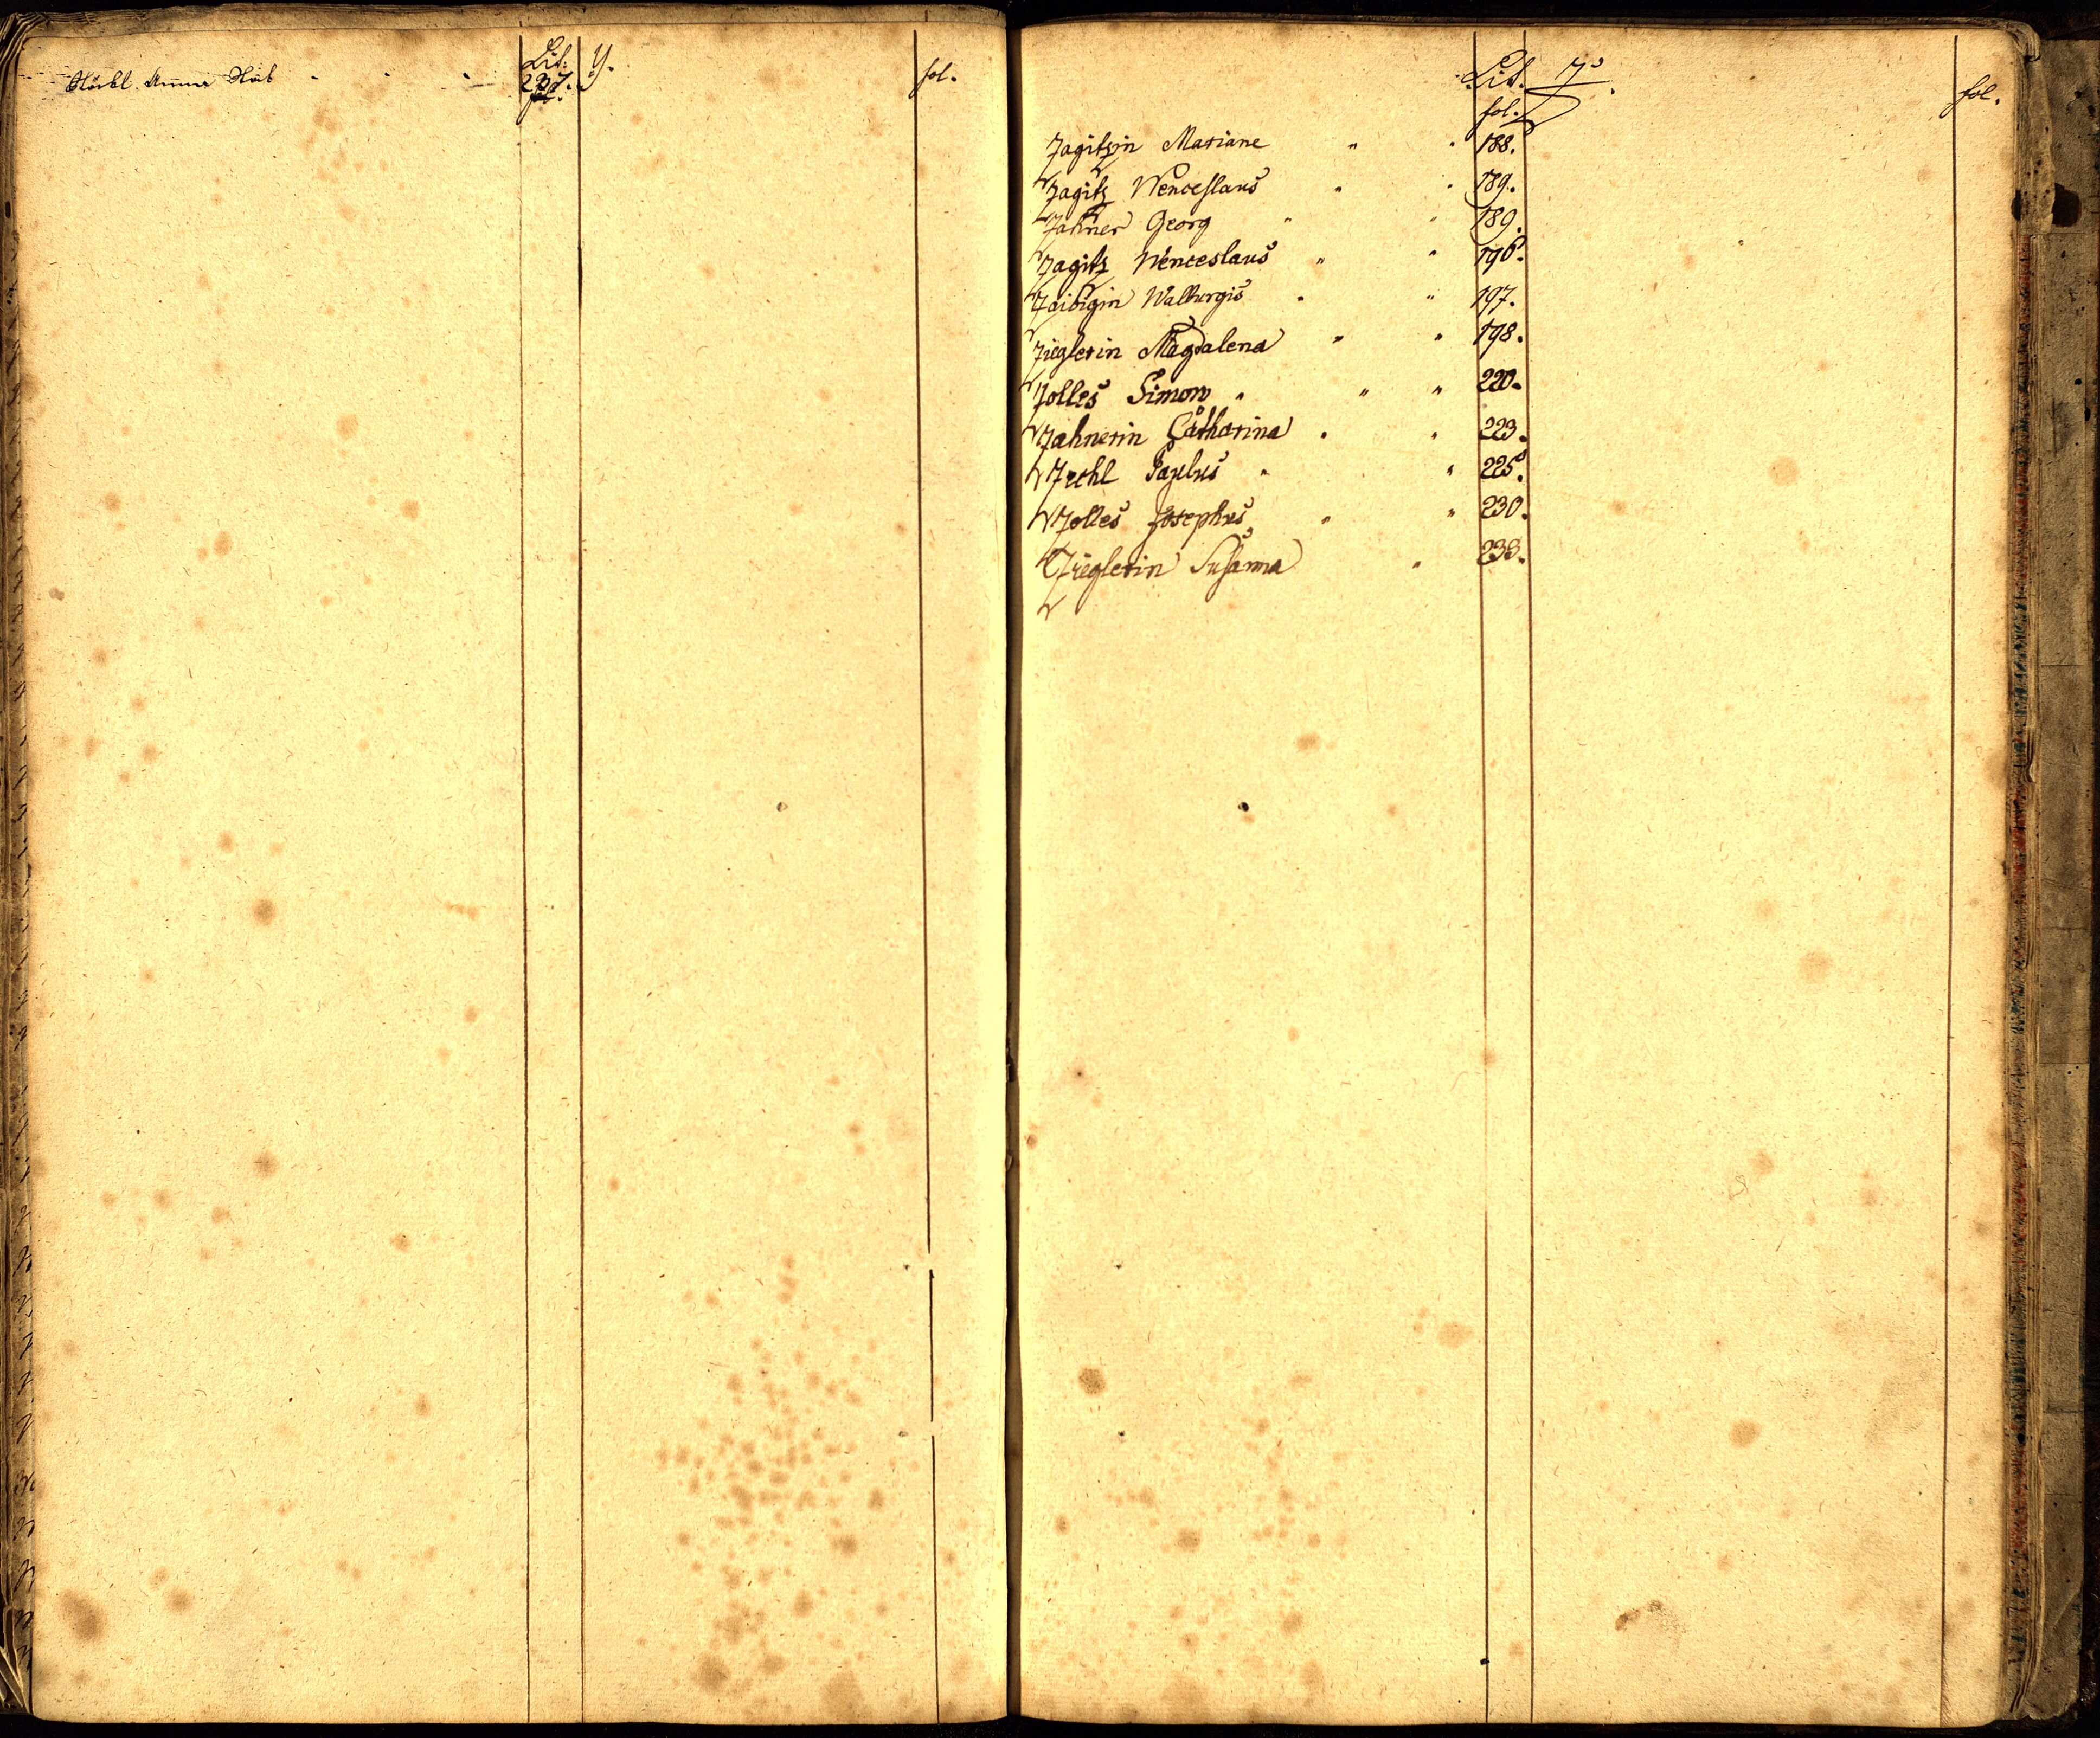 Lit: Y.
Anna 237. fol.
fol.
Lit. Z.
fol. fol.
Zagitzin Mariane " " 188.
Zagitz Wenceslaus " " 189.
Zahner Georg " " 189.
Zagitz Wenceslaus " " 196.
Zaidigin Walburgis " " 197.
Zieglerin Magdalena " " 198.
Zolles Simon " " " 220.
Zahnerin Catharina " " 223.
Zechl Paulus " " 225.
Zolles Josephus " " 230.
Zieglerin Susanna " 238.